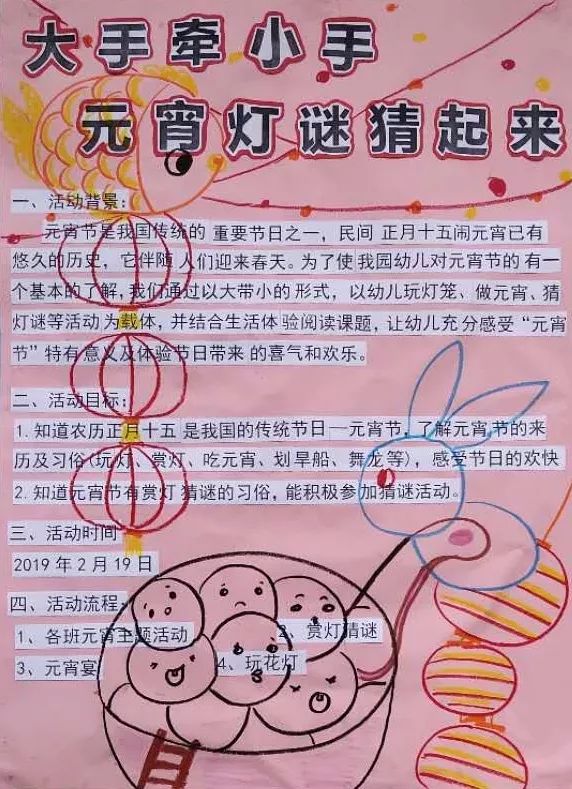 大手牵小手
元宵灯谜猜起来
一、活动背景：
元宵节是我国传统的 重要节日之一，民间 正月十五闹元宵已有
悠久的历史，它伴随 人们迎来春天。为了使 我园幼儿对元宵节的 有一
个基本的了解，我们通过以大带小的 形式，以幼儿玩灯笼、做元宵、猜
灯谜等活动为载体，并结合生活体 验阅读课题，让幼儿充分感受“元宵
节”特有意义及体验节日带来 的喜气和欢乐。
二、活动目标：
1.知道农历正月十五 是我国的传统节日—元宵节，了解元宵节的来
历及习俗(玩灯、赏灯、吃元宵、划旱船、舞龙等)，感受节日的欢快
2.知道元宵节有赏灯 猜谜的习俗，能积极参 加猜谜活动。
三、活动时间
2019 年 2 月 19 日
四、活动流程：
1、各班元宵主题活动 2、赏灯猜谜
3、元宵宴 4、玩花灯